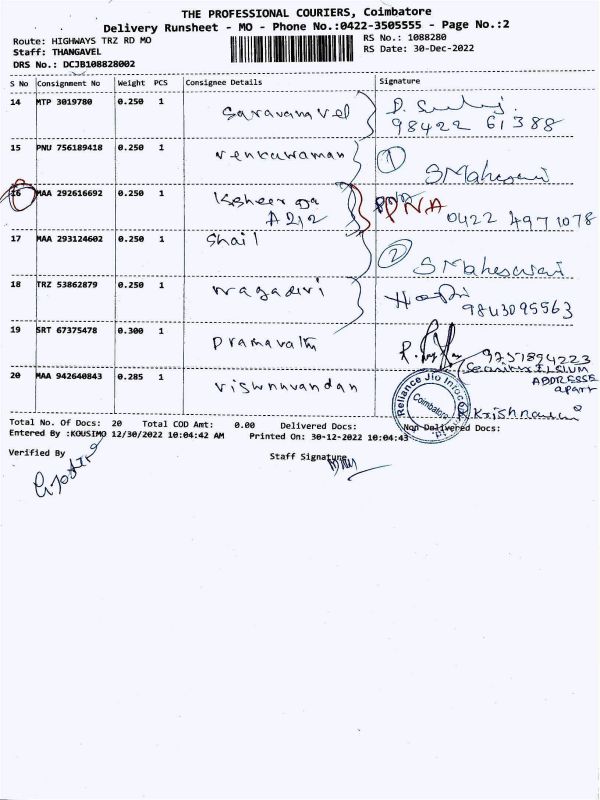 THE PROFESSIONAL COURIERS, Coimbatore
Delivery Runsheet - MO - Phone No.:0422-3505555 - Page No.:2
Route: HIGHWAYS TRZ RD MO
RS No.: 1088280
Staff: THANGAVEL
RS Date: 30-Dec-2022
DRS No.: DCJB108828002
S No Consignment No Weight PCS Consignee Details Signature
14 MTP 3019780 0.250 1 Saravanavel
98422 61388
15 PNU 756189418 0.250 1 1
SMaheswari
16 MAA 292616692 0.250 1 PNA
0422 4971078
17 MAA 293124602 0.250 1 Shail 2
SMaheswari
18 TRZ 53862879 0.250 1 Nagadevi
9843095563
19 SRT 67375478 0.300 1
9751894223
ADDRESSE
apart
20 MAA 942640843 0.285 1
Reliance Jio Infocomm Ltd.
Coimbatore
Total No. Of Docs: 20 Total COD Amt: 0.00 Delivered Docs: Non Delivered Docs:
Entered By :KOUSIMO 12/30/2022 10:04:42 AM Printed On: 30-12-2022 10:04:43
Verified By
Staff Signature